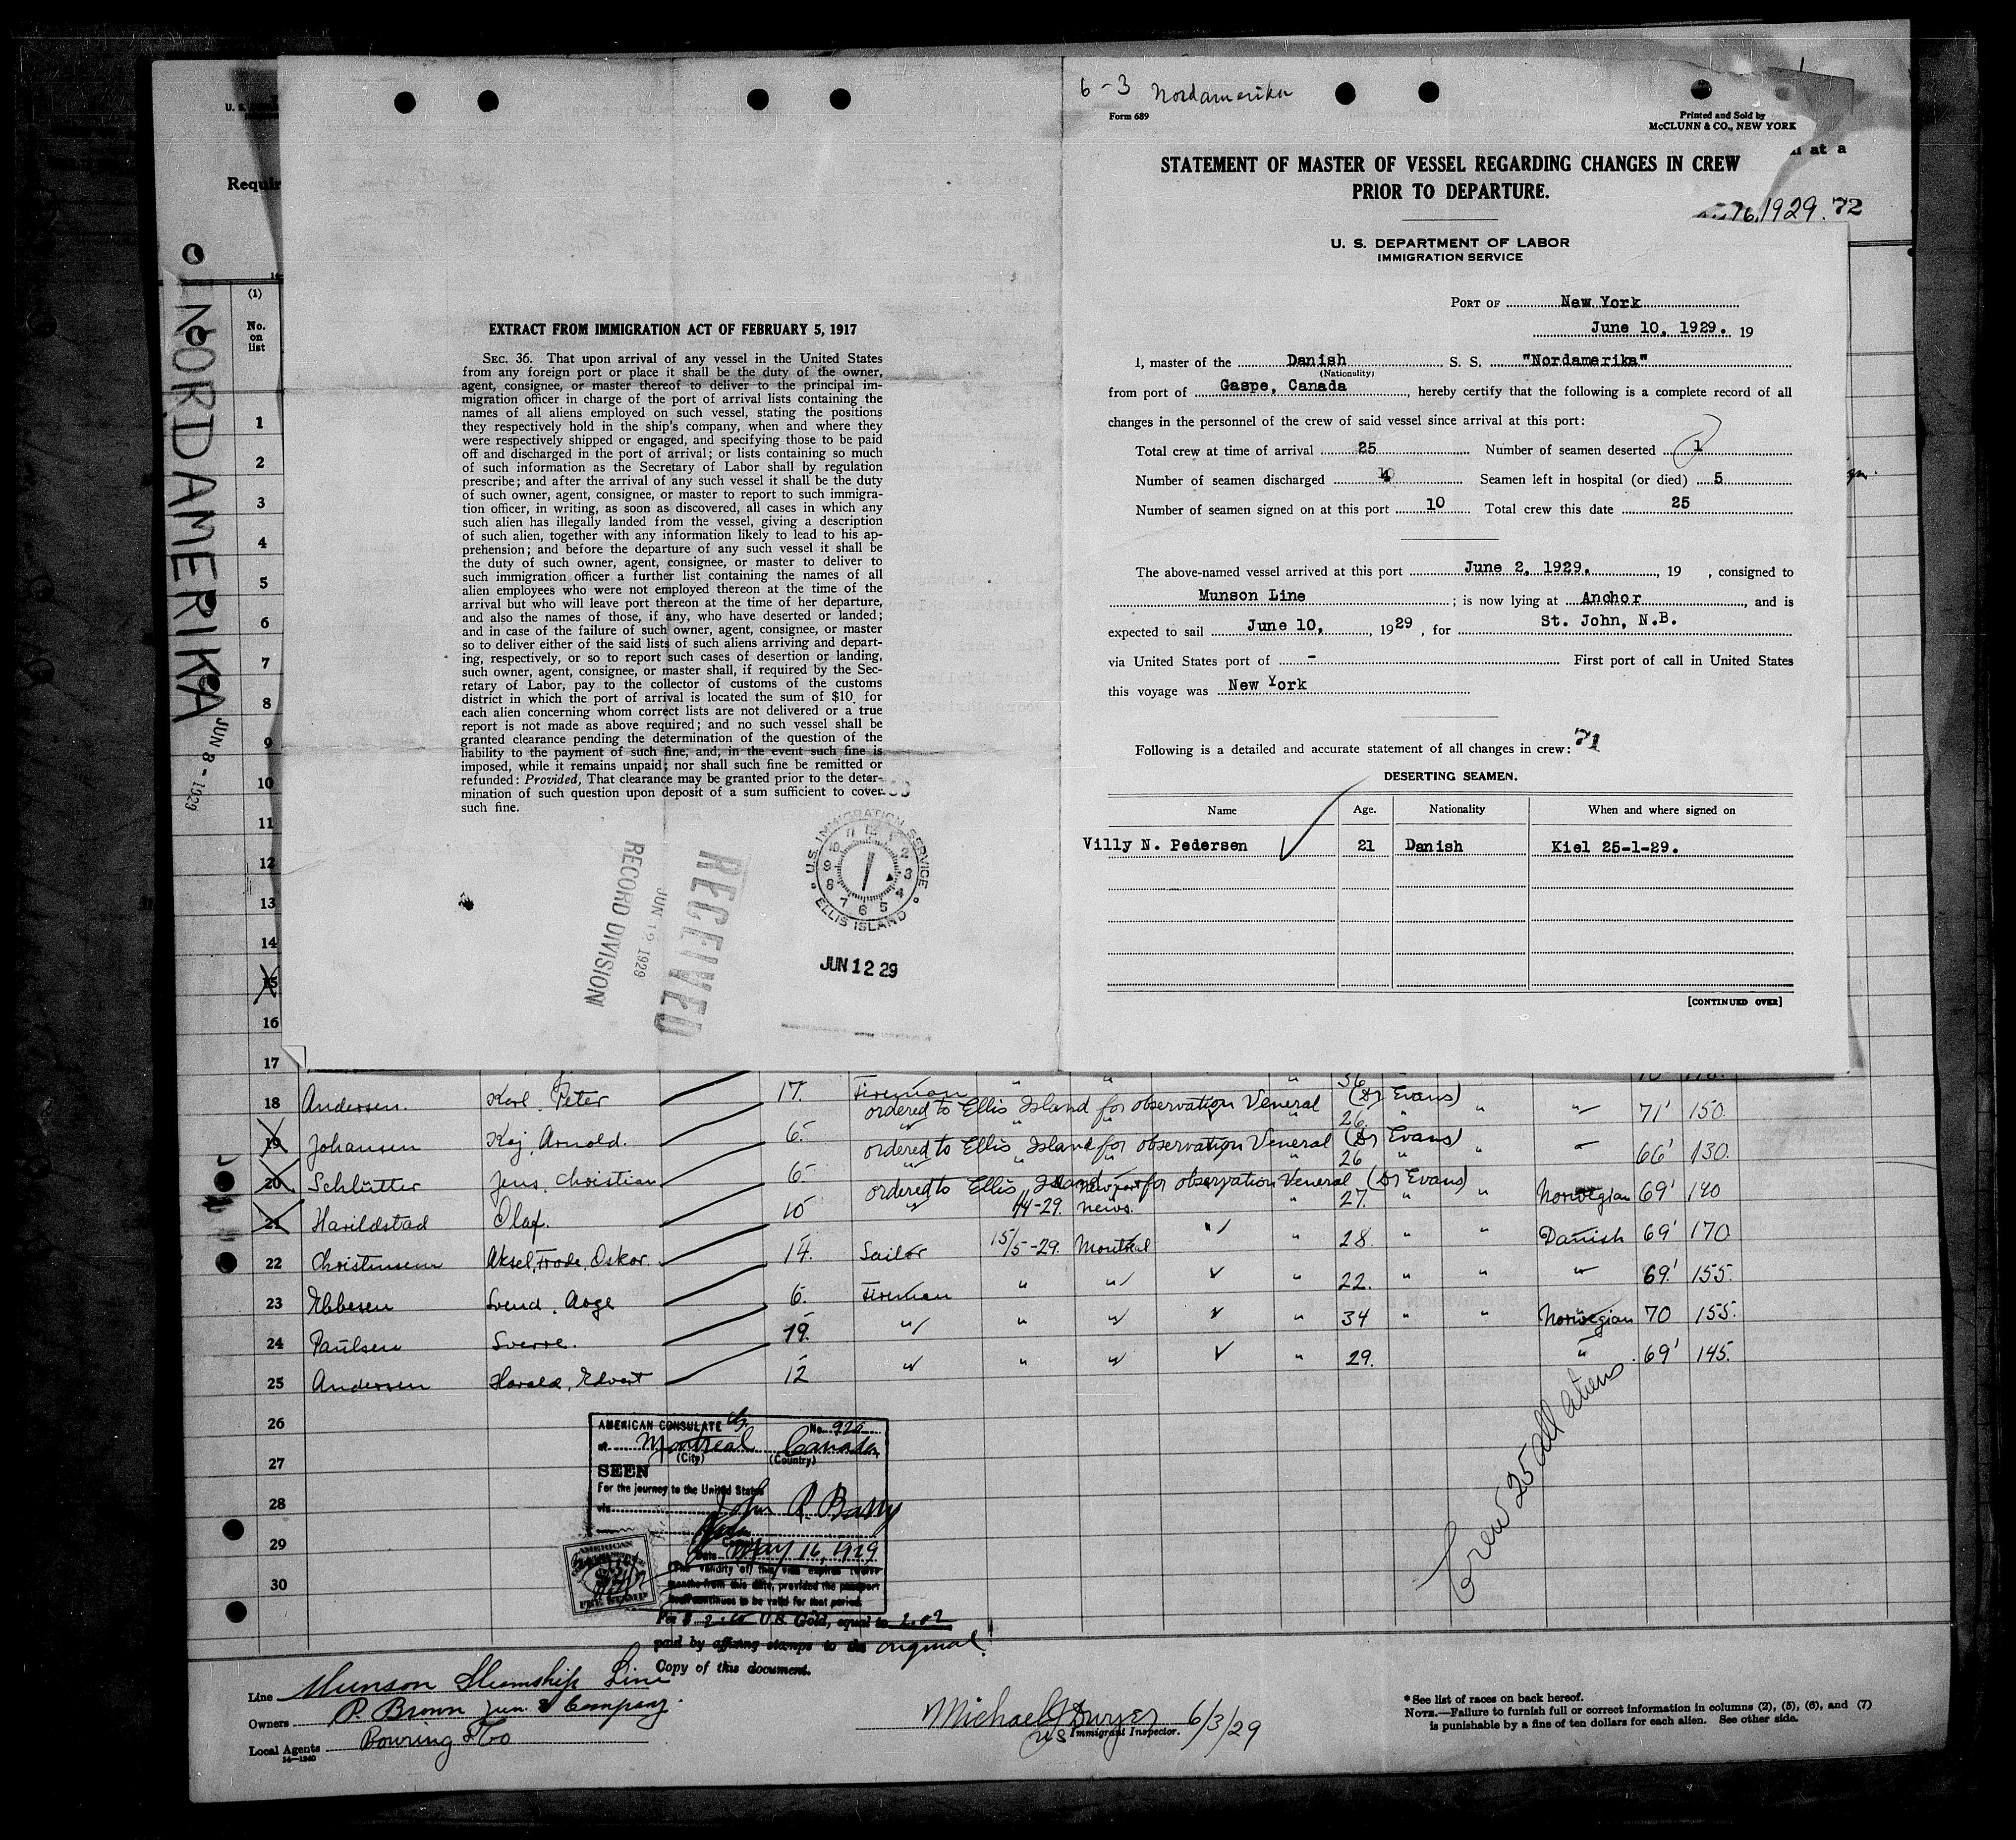 6-3 Nordamerika
Form 689
Printed and Sold by
McCLUNN & CO., NEW YORK
STATEMENT OF MASTER OF VESSEL REGARDING CHANGES IN CREW
PRIOR TO DEPARTURE.
at a
1929. 72
U. S. DEPARTMENT OF LABOR
IMMIGRATION SERVICE
PORT OF New York
June 10, 1929. 19
I, master of the Danish S. S. "Nordamerika"
(Nationality)
from port of Gaspe, Canada, hereby certify that the following is a complete record of all
changes in the personnel of the crew of said vessel since arrival at this port:
Total crew at time of arrival 25 Number of seamen deserted 1
Number of seamen discharged 4 Seamen left in hospital (or died) 5
Number of seamen signed on at this port 10 Total crew this date 25
The above-named vessel arrived at this port June 2, 1929. , 19 , consigned to
Munson Line ; is now lying at Anchor , and is
expected to sail June 10, , 1929 , for St. John, N.B.
via United States port of - First port of call in United States
this voyage was New York
Following is a detailed and accurate statement of all changes in crew: 71
DESERTING SEAMEN.
Name Age. Nationality When and where signed on
Villy N. Pedersen 21 Danish Kiel 25-1-29.
[CONTINUED OVER]
EXTRACT FROM IMMIGRATION ACT OF FEBRUARY 5, 1917
SEC. 36. That upon arrival of any vessel in the United States
from any foreign port or place it shall be the duty of the owner,
agent, consignee, or master thereof to deliver to the principal im-
migration officer in charge of the port of arrival lists containing the
names of all aliens employed on such vessel, stating the positions
they respectively hold in the ship's company, when and where they
were respectively shipped or engaged, and specifying those to be paid
off and discharged in the port of arrival; or lists containing so much
of such information as the Secretary of Labor shall by regulation
prescribe; and after the arrival of any such vessel it shall be the duty
of such owner, agent, consignee, or master to report to such immigra-
tion officer, in writing, as soon as discovered, all cases in which any
such alien has illegally landed from the vessel, giving a description
of such alien, together with any information likely to lead to his ap-
prehension; and before the departure of any such vessel it shall be
the duty of such owner, agent, consignee, or master to deliver to
such immigration officer a further list containing the names of all
alien employees who were not employed thereon at the time of the
arrival but who will leave port thereon at the time of her departure,
and also the names of those, if any, who have deserted or landed;
and in case of the failure of such owner, agent, consignee, or master
so to deliver either of the said lists of such aliens arriving and depart-
ing, respectively, or so to report such cases of desertion or landing,
such owner, agent, consignee, or master shall, if required by the Sec-
retary of Labor, pay to the collector of customs of the customs
district in which the port of arrival is located the sum of $10 for
each alien concerning whom correct lists are not delivered or a true
report is not made as above required; and no such vessel shall be
granted clearance pending the determination of the question of the
liability to the payment of such fine, and, in the event such fine is
imposed, while it remains unpaid; nor shall such fine be remitted or
refunded: Provided, That clearance may be granted prior to the deter-
mination of such question upon deposit of a sum sufficient to cover
such fine.
U.S. IMMIGRATION SERVICE
ELLIS ISLAND
JUN 12 29
RECEIVED
JUN 12 1929
RECORD DIVISION
NORDAMERIKA
JUN 8 - 1929
U. S.
Requir
(1)
No.
on
list
1
2
3
4
5
6
7
8
9
10
11
12
13
14
15
16
17
18 Andersen. Karl. Peter 17. Fireman " " " 36
ordered to Ellis Island for observation Veneral (Dr Evans)
19 Johansen Kaj. Arnold. 6. " " " 26. " " " 71' 150.
ordered to Ellis Island for observation Veneral (Dr Evans)
20 Schlütter Jens. Christian 6 " " " 26 " " " 66' 130.
ordered to Ellis Island for observation Veneral (Dr Evans)
21 Harildstad Olaf. 10 " 4/4-29. Newport news. " 27. " " Norwegian 69' 140
22 Christensen Aksel, Frode, Oskar. 14. Sailor 15/5-29. Montreal " 28. " " Danish 69' 170
23 Ebbesen Svend. Aage 6. Fireman " " " 22. " " " 69.' 155.
24 Paulsen Sverre. 19. " " " " 34 " " Norwegian 70 155.
25 Andersen Harald, Edvart 12 " " " " 29. " 69' 145.
26
27
28
29
30
Crew 25 all aliens
AMERICAN CONSULATE No. 920
at Montreal Canada
(City) (Country)
SEEN
For the journey to the United States
via
John R. Barry
Date May 16, 1929
(The validity of this visa expires twelve
months from this date, provided the passport
continues to be valid for that period.
AMERICAN
FEE STAMP
Fee $ 2.00 U.S. Gold, equal to 2.02
paid by affixing stamps to the original
Copy of this document.
Line Munson Steamship Line
Owners P. Brown jun. & Company.
Local Agents Bowring & Co
14-1240
Michael J Dwyer 6/3/29
US Immigrant Inspector.
*See list of races on back hereof.
NOTE.—Failure to furnish full or correct information in columns (2), (5), (6), and (7)
is punishable by a fine of ten dollars for each alien. See other side.